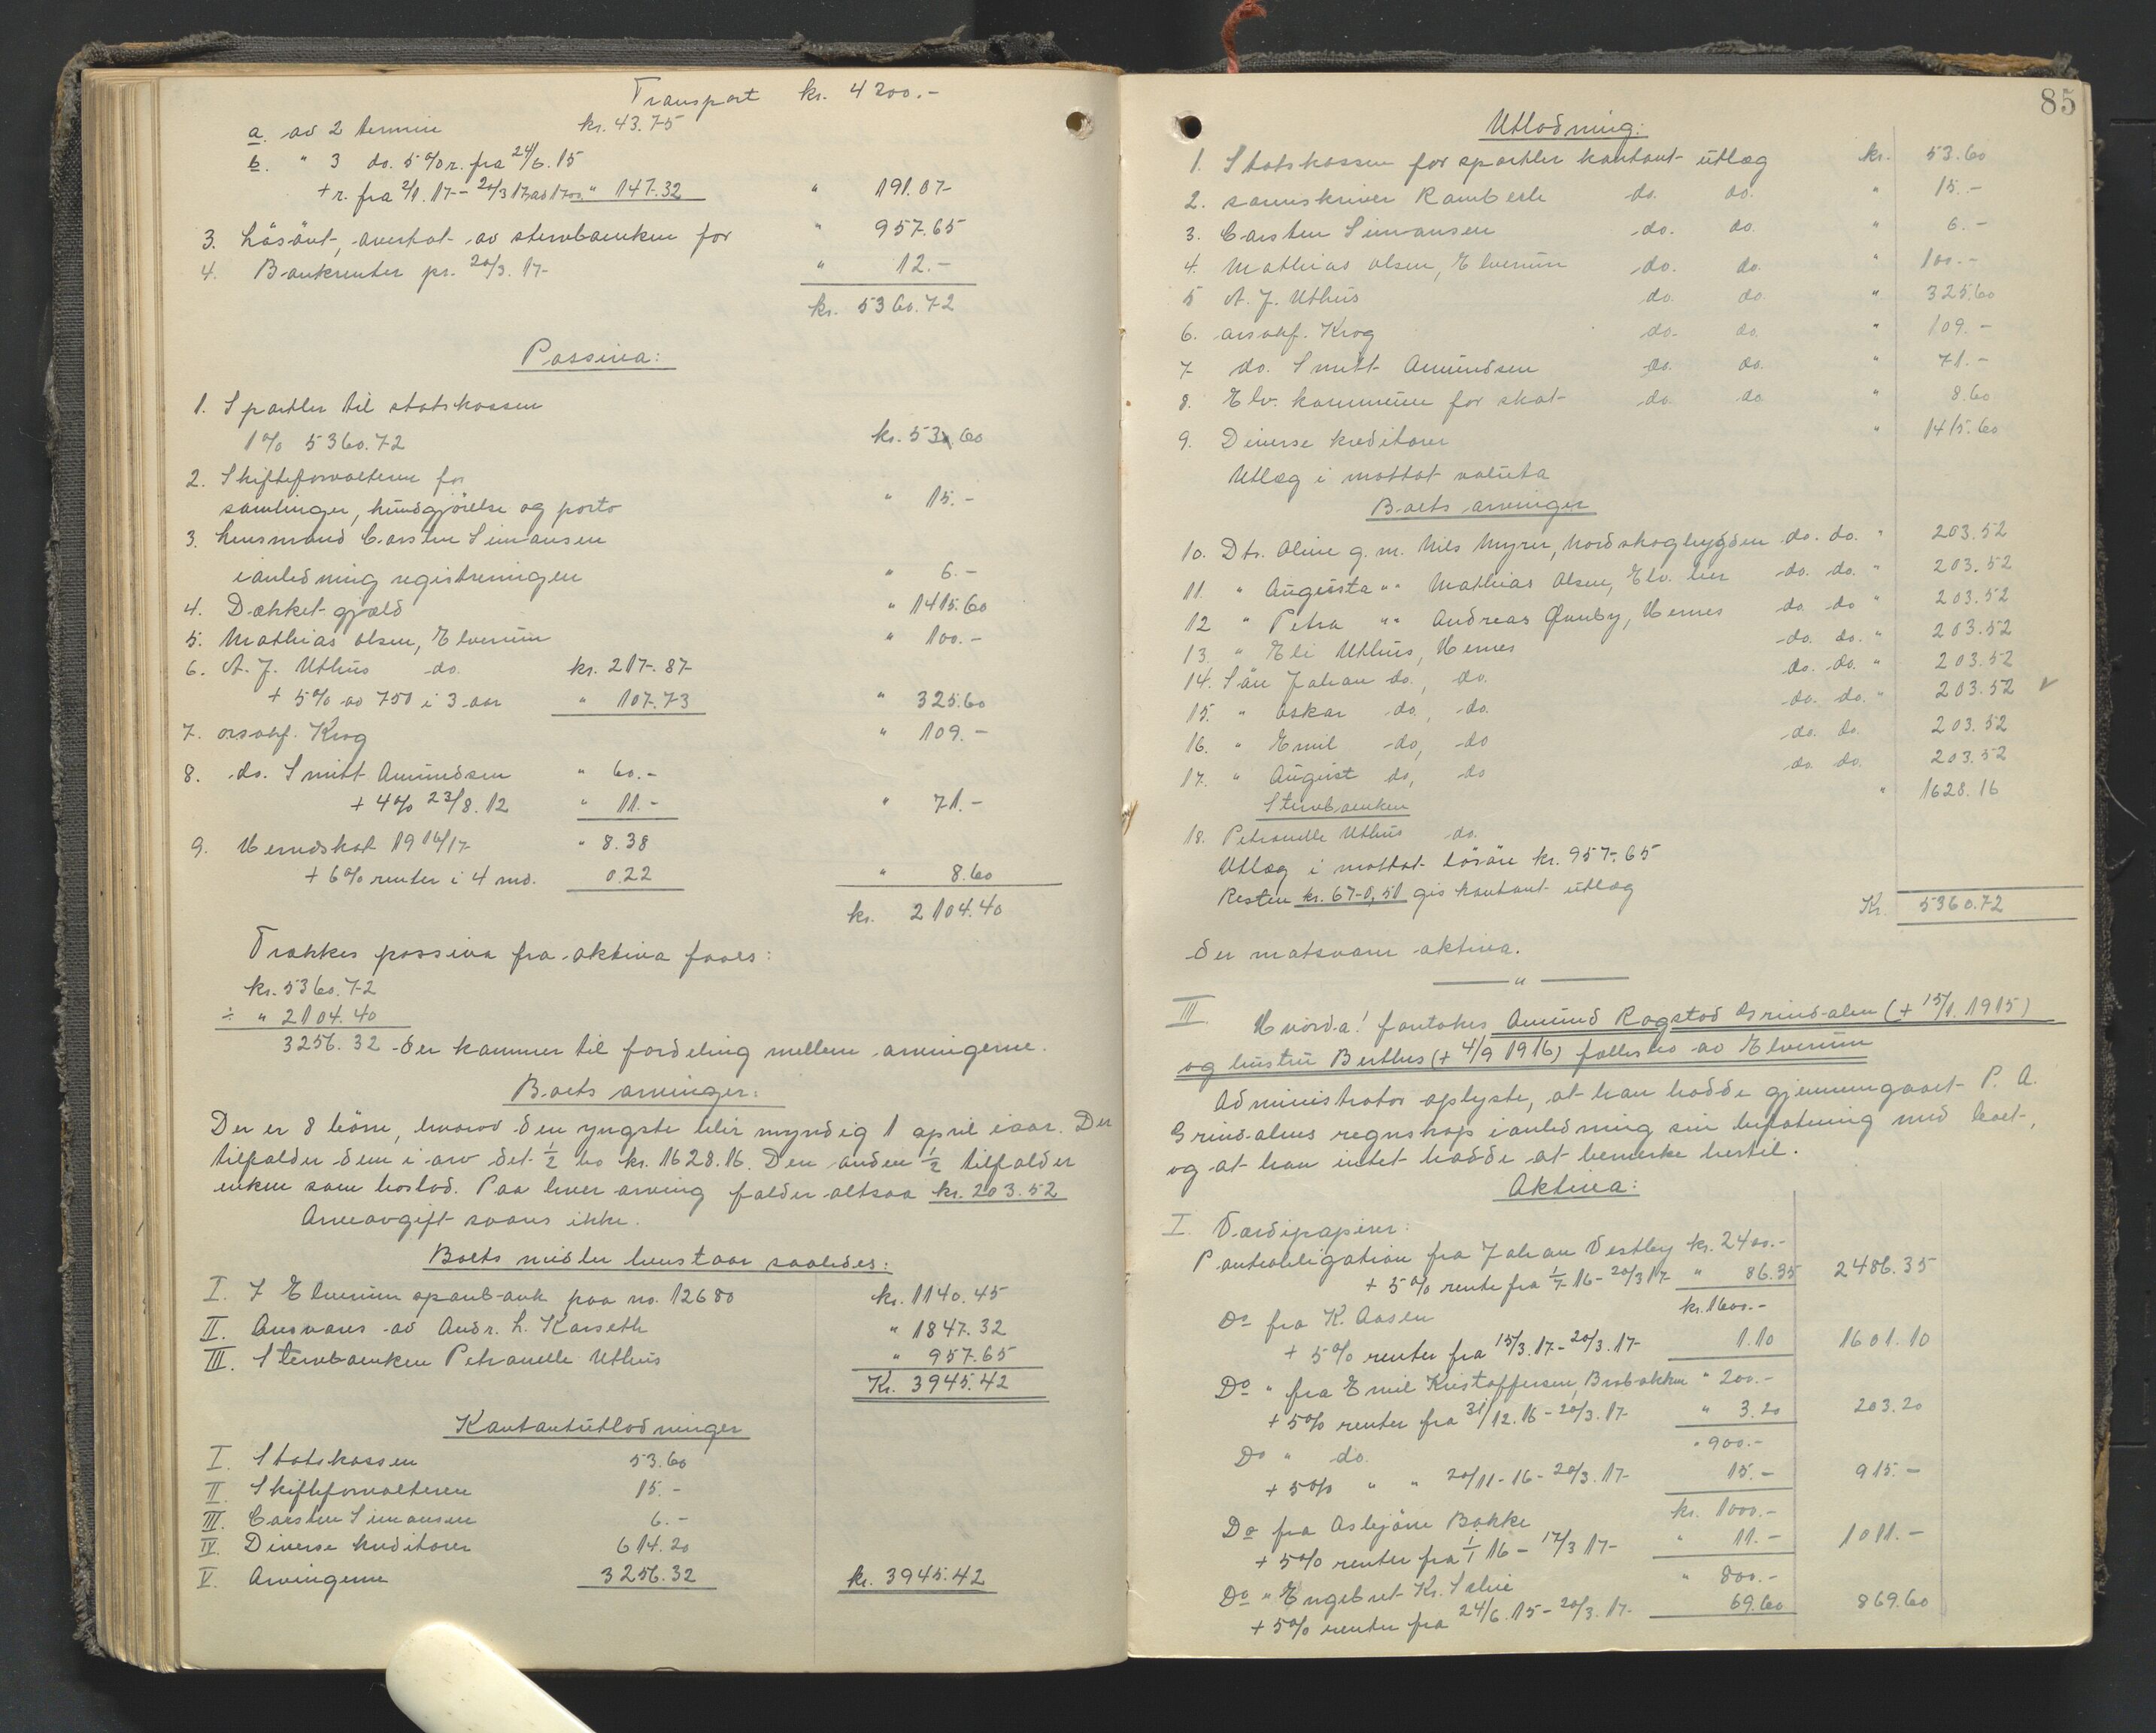 Transport kr. 4200.-
a. av 2 termin kr. 43.75
b. " 3 do. 5% r. fra 24/6. 15
+ r. fra 2/1. 17 - 20/3 17 av " 147.32 " 191.07
3. Løsøret, overtat av stervboenken for " 957.65
4. Bankrenter pr. 20/3. 17 " 12.-
kr. 5360.72
Passiva:
1. Sportler til statskassen
1% 5360.72 kr. 53.60
2. Skifteforvalteren for
samlinger, kundgjørelse og porto " 15.-
3. Lensmand Carsten Simansen
i anledning registreringen " 6.-
4. Dækket gjæld " 1415.60
5. Mathias Olsen, Elverum " 100.-
6. A. J. Uthus do. kr. 217.87
+ 5% av 750 i 3 aar " 107.73 " 325.60
7. orsakf. Krog " 109.-
8. do. Smitt Amundsen " 60.-
+ 4% 23/8. 12 " 11.- " 71.-
9. Herredskat 1916/17 " 8.38
+ 6% renter i 4 md. 0.22 " 8.60
kr. 2104.40
Trækkes passiva fra aktiva faaes:
kr. 5360.72
÷ " 2104.40
3256.32 der kommer til fordeling mellem arvingerne.
Boets arvinger:
Der er 8 børn, hvorav den yngste blir myndig 1 april iaar. Der
tilfalder dem i arv det 1/2 bo kr. 1628.16. Den anden 1/2 tilfalder
enken som boslod. Paa hver arving falder altsaa kr. 203.52
Arveavgift svares ikke.
Boets midler henstaar saaledes:
I. I Elverum sparebank paa no. 12680 kr. 1140.45
II. Ansvares av Andr. L. Karseth " 1847.32
III. Stervboenken Petronelle Uthus " 957.65
Kr. 3945.42
Kontantutlodninger
I. Statskassen 53.60
II. Skifteforvalteren 15.-
III. Carsten Simansen 6.-
IV. Diverse kreditorer 614.20
V. Arvingerne 3256.32 kr. 3945.42
85
Utlodning:
1. Statskassen for sportler kontant utlæg kr. 53.60
2. sorenskriver Rambech do. do. " 15.-
3. Carsten Simansen do. do. " 6.-
4. Mathias Olsen, Elverum do. do. " 100.-
5 A. J. Uthus do. do. " 325.60
6. orsakf. Krog do. do. " 109.-
7 do. Smitt Amundsen do. do. " 71.-
8. Elv. kommune for skat do. do " 8.60
9. Diverse kreditorer " 1415.60
Utlæg i mottat valuta
Boets arvinger
10. Dtr. Oline g. m. Nils Myrer, Nordskogbygden do. do. " 203.52
11. " Augusta " " Mathias Olsen, Elv. her do. do. " 203.52
12 " Petra " " Andreas Quuby, Hernes do do " 203.52
13. " Eli Uthus, Hernes do. do. " 203.52
14. Søn Johan do., do. do. do. " 203.52
15. " Oskar do., do. do. do. " 203.52 ✓
16. " Emil do, do do. do. 203.52
17. " August do, do do. do. 203.52
Stervboenken " 1628.16
18. Petronelle Uthus do.
Utlæg i mottat løsøre kr. 957.65
Resten kr. 670,51 gis kontant utlæg
Kr. 5360.72
der motsvarer aktiva.
— " —
III. Hvorda! foretokes Amund Rogstad Grindalen (+ 15/1. 1915)
og hustru Berthes (+ 4/9 1916) fællesbo av Elverum
Administrator oplyste, at han hadde gjennemgaaet P. A.
Grindalens regnskap i anledning sin befatning med boet,
og at han intet hadde at bemerke hertil.
Aktiva:
I. Værdipapirer:
Pantobligation fra Johan Vestby kr. 2400.-
+ 5% rente fra 1/7 16 - 20/3 17 " 86.35 2486.35
Do fra K. Aasen kr. 1600.-
+ 5% renter fra 15/3. 17 - 20/3. 17 1.10 1601.10
Do " fra Emil Kristoffersen, Brobakken " 200.-
+ 5% renter fra 31/12. 16 - 20/3. 17 " 3.20 203.20
Do " do. " 900.-
+ 5% " " 20/11 - 16 - 20/3. 17 15.- 915.-
Do fra Asbjørn Bakke kr. 1000.-
+ 5% renter fra 1/1 16 - 17/3 17 " 11.- 1011.-
Do " Engebret Kr. Sælie " 800.-
+ 5% renter fra 24/6. 15 - 20/3. 17 69.60 869.60